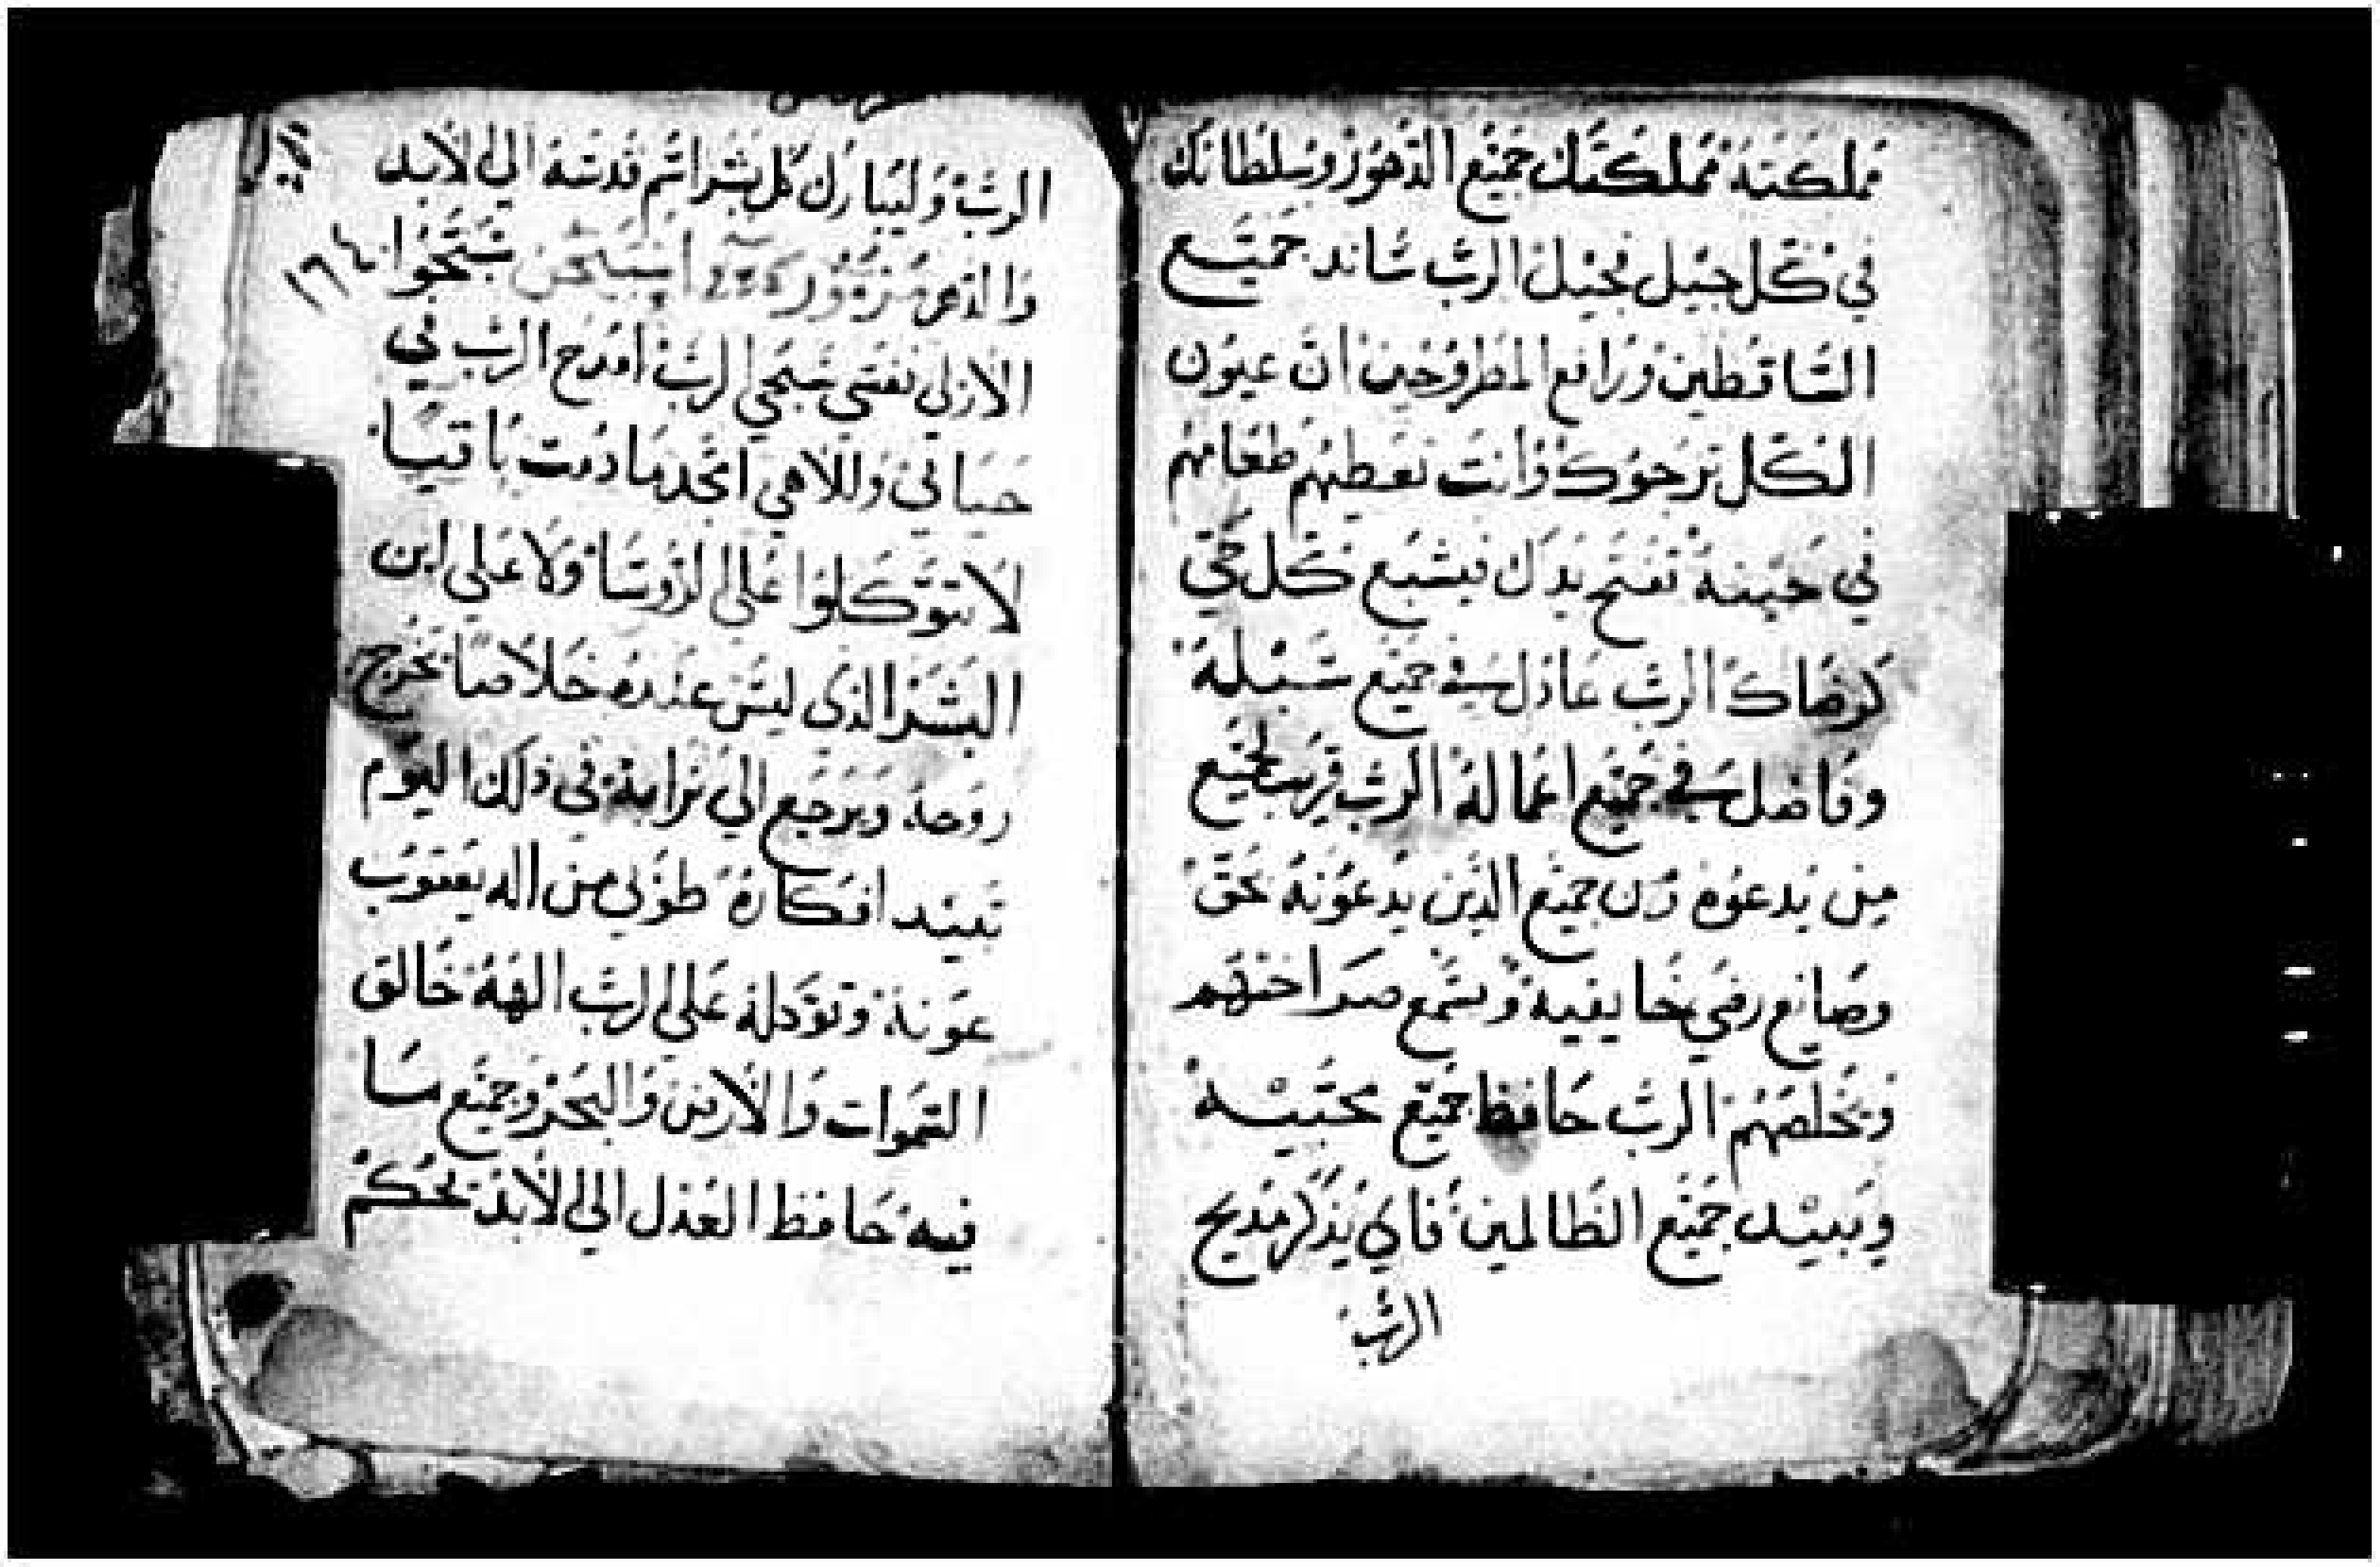 مملكته مملكتك جميع الدهور وسلطانك
في كل جيل فجيل الرب ساند جميع
الساقطين ورافع المطروحين ان عيون
الكل ترجوك وانت تعطيهم طعامهم
في حينه تفتح يدك فيشبع كل حي
كرضاك الرب عادل في جميع سبله
وفاضل في جميع اعماله الرب قريب لجميع
من يدعوه ولجميع الذين يدعونه بحق
وصانع رضي خايفيه ويسمع صراختهم
ويخلصهم الرب حافظ جميع محبيه
ويبيد جميع الظالمين فاي يذكر مديح
الرب
الرب وليبارك كل بشر اسم قدسه الي الابد
والدهر مزمور سبحوا
الازلي نفسي سبحي الرب امدح الرب في
حياتي وللاهي امجد ما دمت باقيا
لا تتوكلوا علي الروسا ولا علي ابن
البشر الذي ليس عنده خلاصا تخرج
روحه ويرجع الي ترابه في ذلك اليوم
تبيد افكاره طوبي من اله يعقوب
عونه وتوكله علي الرب الهه خالق
السموات والارض والبحر وجميع ما
فيه حافظ العدل الي الابد يحكم